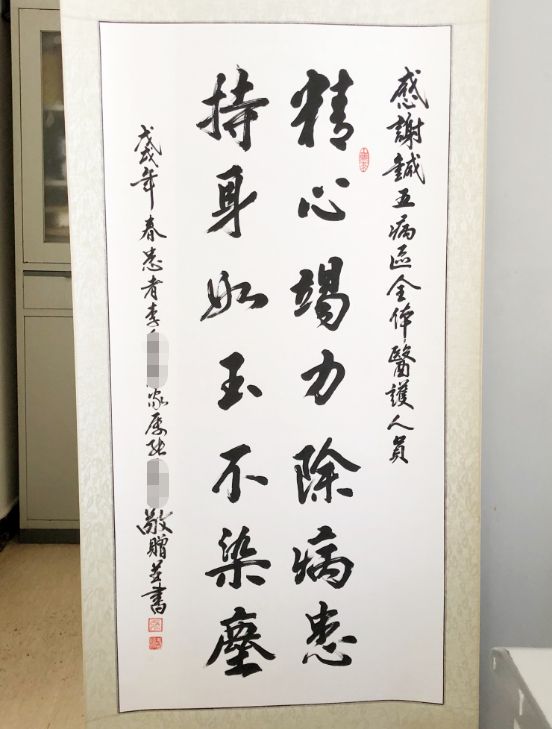 感謝誠五病區全体醫護人員
精心竭力除病患
持身如玉不染塵
戊戌年春患者李 家属張 敬贈并書